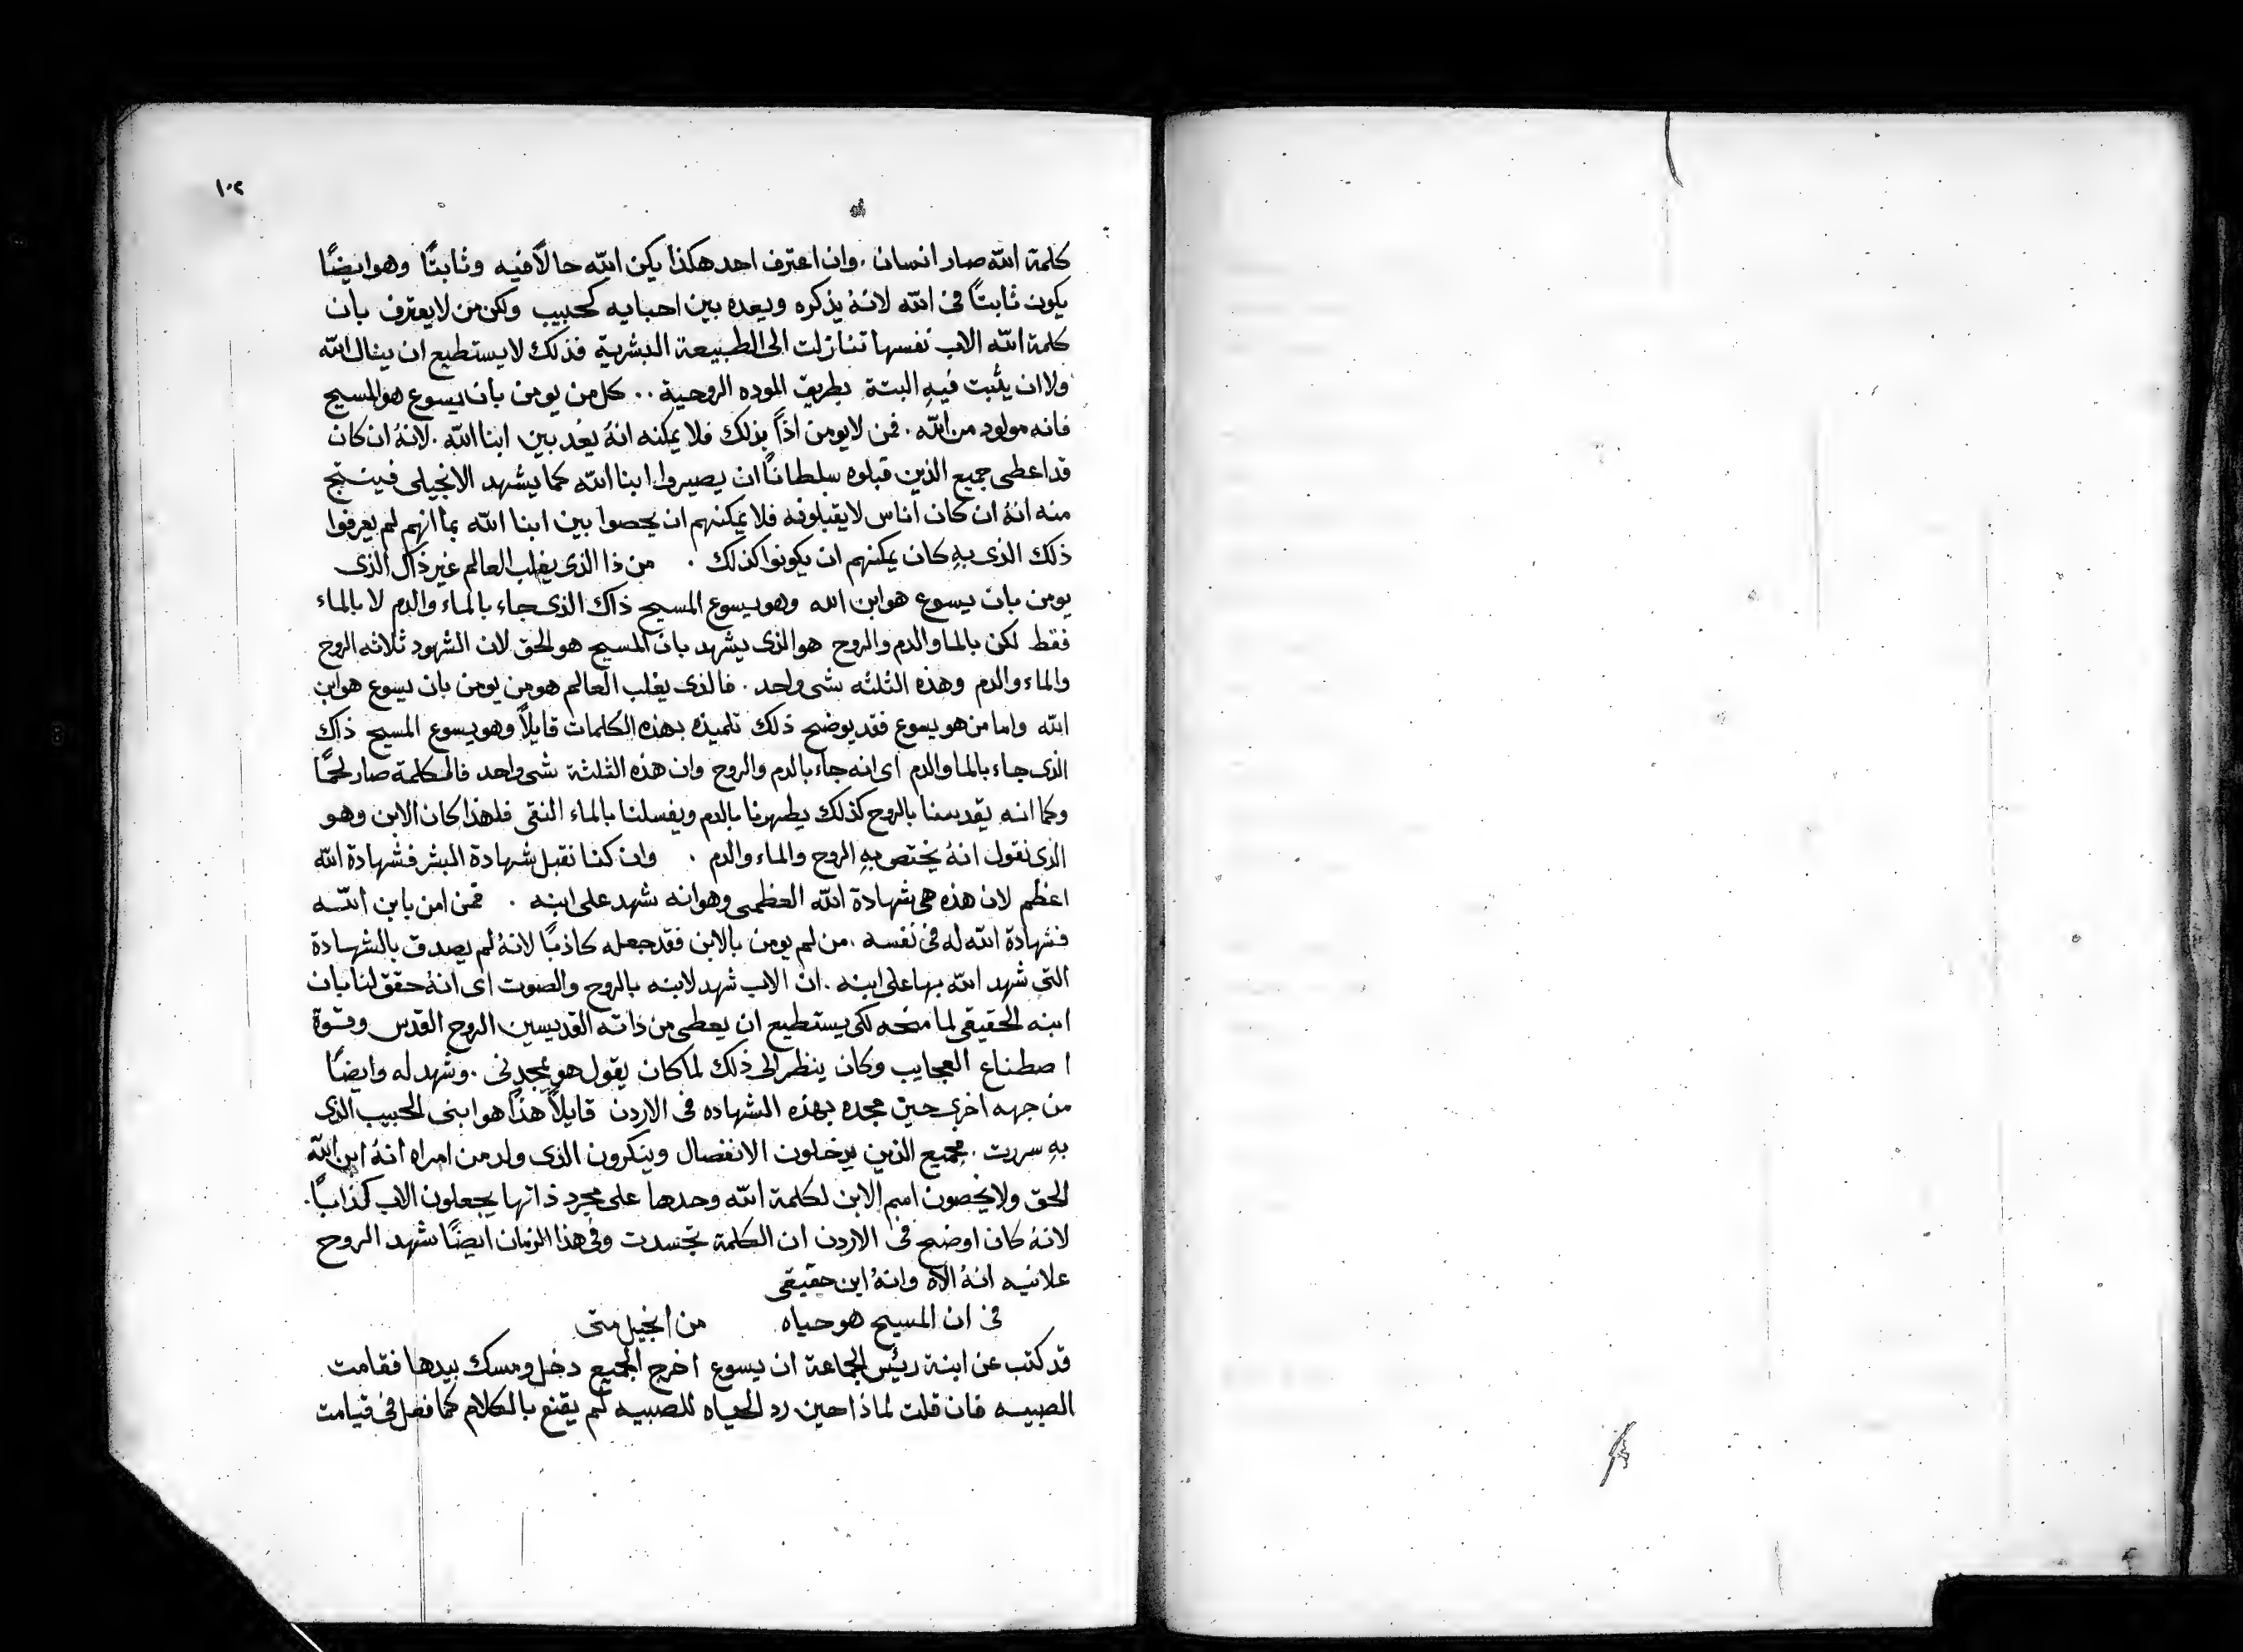 ١٠٢
كلمة الله صار انسان . وان اعترف احد هكذا يكن الله حالاً فيه وثابتًا وهو ايضًا
يكون ثابتًا فى الله لانهُ يذكره ويعده بين احبايه كحبيب ولكن من لا يعترف بان
كلمة الله الاب نفسها تنازلت الى الطبيعة البشرية فذلك لا يستطيع ان ينال الله
ولا ان يثبت فيهِ البتة بطريق الموده الروحية . . كل من يومن بان يسوع هو المسيح
فانه مولود من الله . فمن لا يومن اذاً بذلك فلا يمكنه انهُ يعُد بين ابنا الله . لانهُ ان كان
قد اعطى جميع الذين قبلوه سلطانًا ان يصيروا ابنا الله كما يشهد الانجيلى فينتج
منه انهُ ان كان اناس لا يقبلونه فلا يمكنهم ان يحصوا بين ابنا الله بما انهم لم يعرفوا
ذلك الذى بهِ كان يمكنهم ان يكونوا كذلك . من ذا الذى يغلب العالم غير ذاك الذى
يومن بان يسوع هو ابن الله وهو يسوع المسيح ذاك الذى جاء بالماء والدم لا بالماء
فقط لكن بالما والدم والروح هو الذى يشهد بان المسيح هو الحق لان الشهود ثلاثه الروح
والماء والدم وهذه الثلثه شى واحد . فالذى يغلب العالم هو من يومن بان يسوع هو ابن
الله واما من هو يسوع فقد يوضح ذلك تلميذه بهذه الكلمات قايلاً وهو يسوع المسيح ذاك
الذى جاء بالما والدم اى انه جاء بالدم والروح وان هذه الثلثة شى واحد فالكلمة صار لحمًا
وكما انه يقدسنا بالروح كذلك يطهرنا بالدم ويغسلنا بالماء النقى فلهذا كان الابن وهو
الذى نقول انهُ يختص بهِ الروح والماء والدم . وان كنا نقبل شهادة البشر فشهادة الله
اعظم لان هذه هى شهادة الله العظمى وهو انه شهد على ابنه . فمن امن بابن الله
فشهادة الله له فى نفسه . من لم يومن بالابن فقد جعله كاذبًا لانهُ لم يصدق بالشهادة
التى شهد الله بها على ابنه . ان الاب شهد لابنه بالروح والصوت اى انهُ حقق لنا بان
ابنه الحقيقى لما منحه لكى يستطيع ان يعطى من ذاته القديسين الروح القدس وقوة
اصطناع العجايب وكان ينظر الى ذلك لما كان يقول هو يمجدنى . وشهد له وايضًا
من جهه اخرى حين مجده بهذه الشهاده فى الاردن قايلاً هذا هو ابنى الحبيب الذى
بهِ سررت . فجميع الذين يدخلون الانفصال وينكرون الذى ولد من امراه انهُ ابن الله
الحق ولا يخصون اسم الابن لكلمة الله وحدها على مجرد ذاتها يجعلون الاب كذابًا .
لانهُ كان اوضح فى الاردن ان الكلمة تجسدت وفى هذا الزمان ايضًا شهد الروح
علانيه انهُ الاه وانهُ ابن حقيقى
فى ان المسيح هو حياه من انجيل متى
قد كتب عن ابنة رئيس الجماعة ان يسوع اخرج الجميع دخل ومسك بيدها فقامت
الصبيه فان قلت لماذا حين رد الحياه للصبيه لم يقنع بالكلام كما فعل فى قيامت